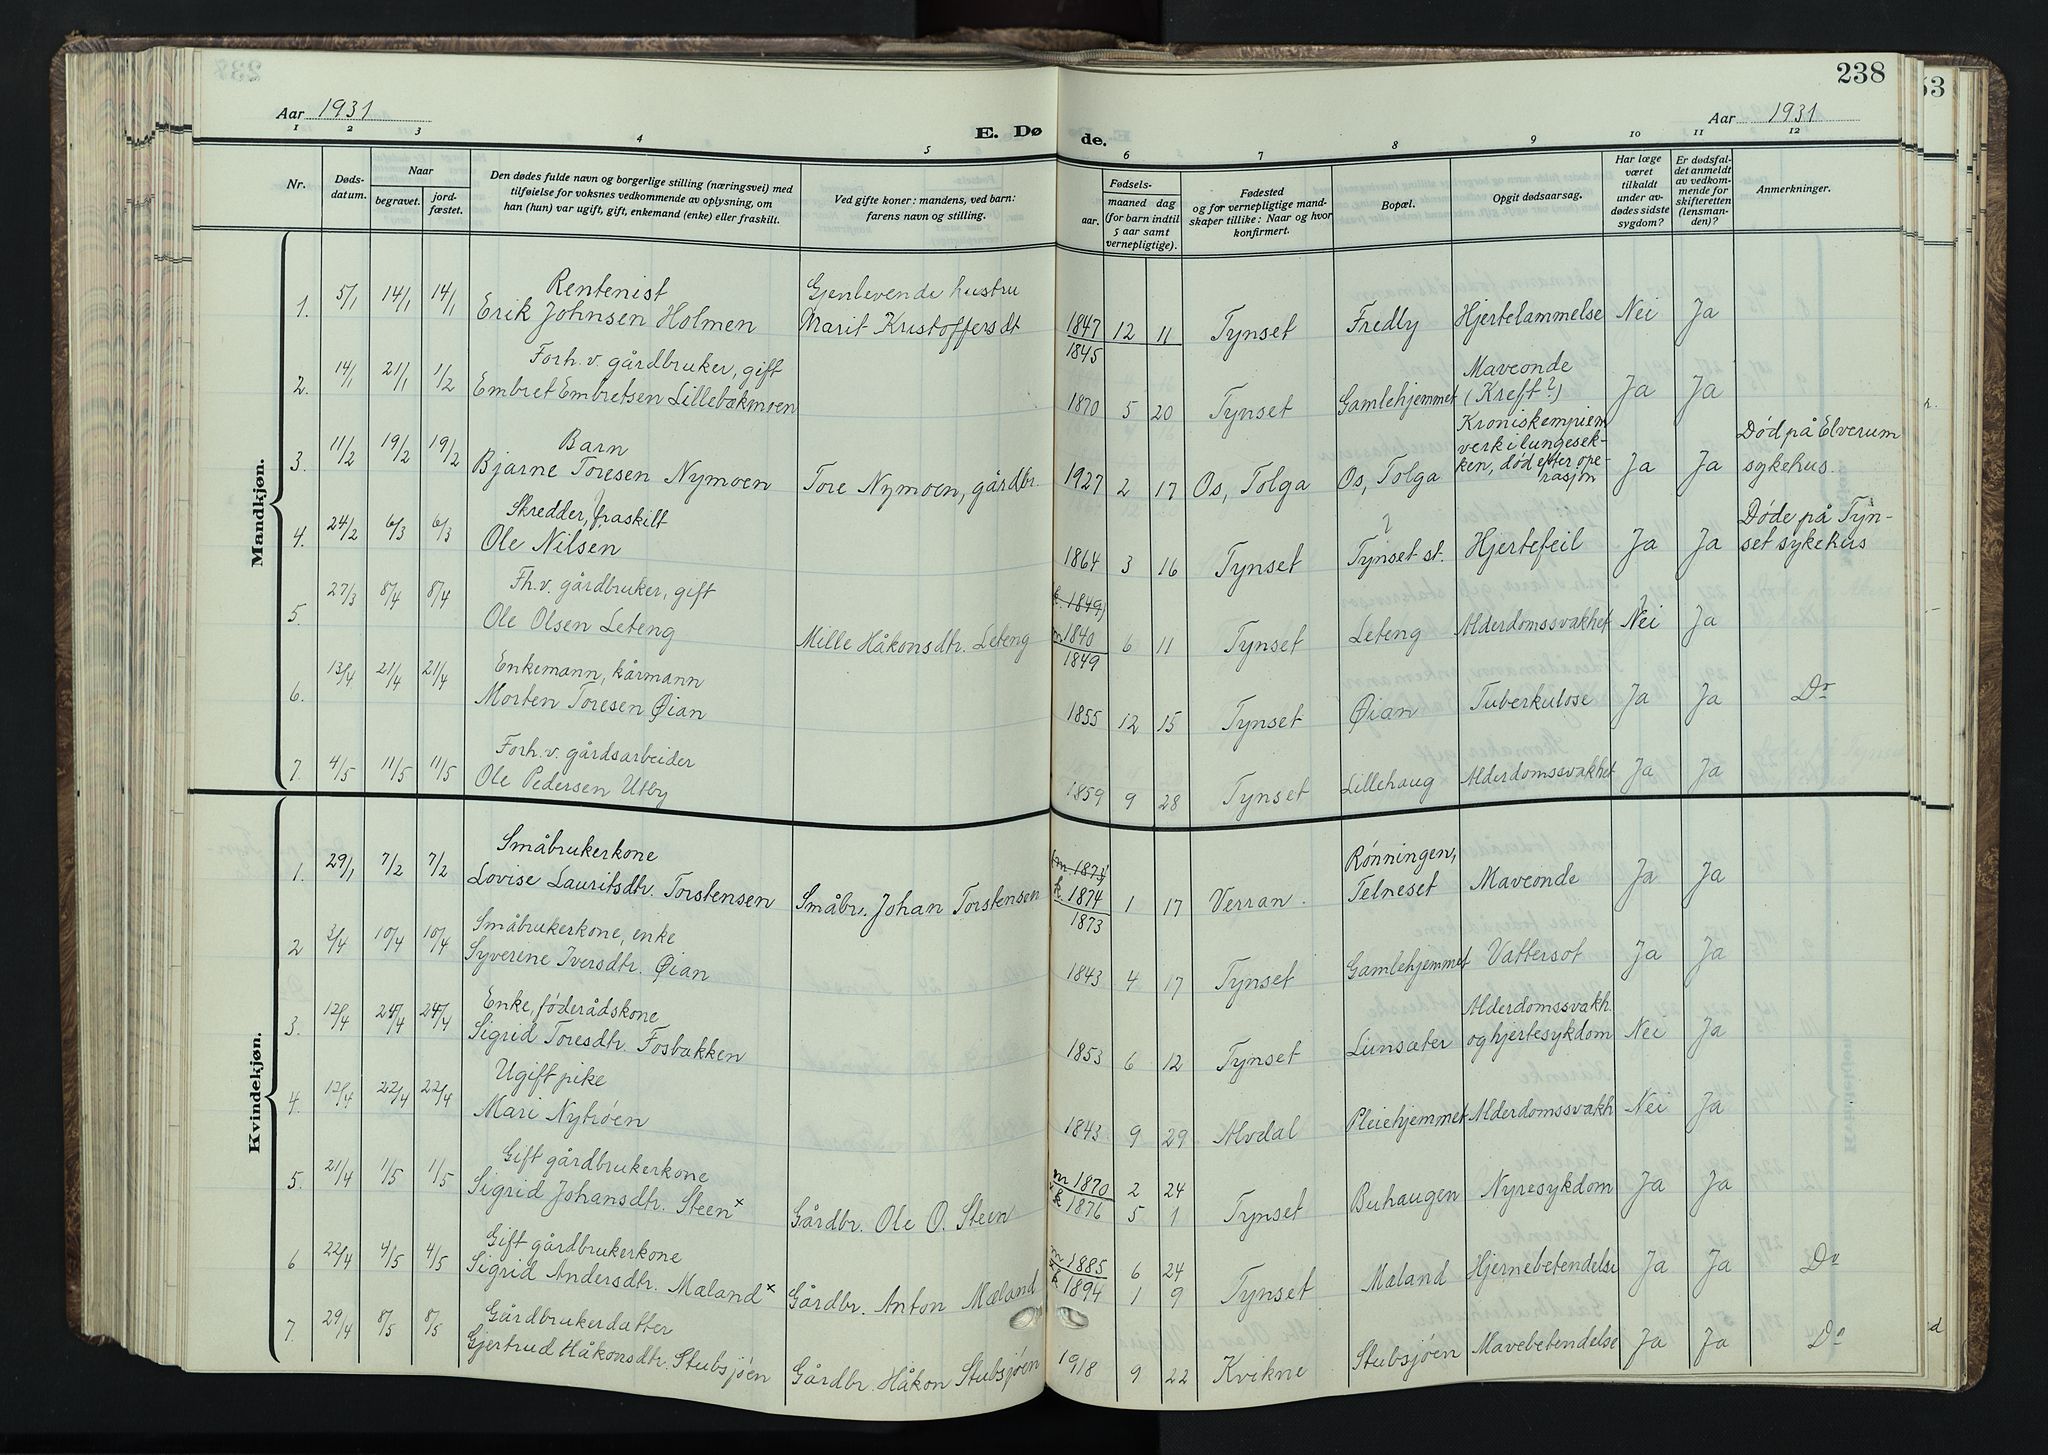 238
53
Aar 1931
Aar 1931
E. Dø de.
1 2 3 4 5 6 7 8 9 10 11 12
Nr.
Døds-
datum.
Naar
begravet.
jord-
fæstet.
Den dødes fulde navn og borgerlige stilling (næringsvei) med
tilføielse for voksnes vedkommende av oplysning, om
han (hun) var ugift, gift, enkemand (enke) eller fraskilt.
Ved gifte koner: mandens, ved barn:
farens navn og stilling.
Fødsels-
aar.
maaned dag
(for barn indtil
5 aar samt
vernepligtige).
Fødested
og for vernepligtige mand-
skaper tillike: Naar og hvor
konfirmert.
Bopæl.
Opgit dødsaarsag.
Har læge
været
tilkaldt
under av-
dødes sidste
sygdom?
Er dødsfal-
det anmeldt
av vedkom-
mende for
skifteretten
(lensman-
den)?
Anmerkninger.
Mandkjøn.
1. 5/1 14/1 14/1 Rentenist
Erik Johnsen Holmen
Gjenlevende hustru
Marit Kristoffersdt
1847
1845
12 11 Tynset Fredly Hjertelammelse Nei Ja
2. 14/1 21/1 1/2 Forh. v. gårdbruker, gift
Embret Embretsen Lillebækmoen
1870 5 20 Tynset Gamlehjemmet
Maveonde
(Kreft?)
Ja Ja
3. 11/2 19/2 19/2 Barn
Bjarne Toresen Nymoen
Tore Nymoen, gårdbr.
1927 2 17 Os, Tolga Os, Tolga
Kronisk empiem
verk i lungesek-
ken, død efter ope-
rasjon
Ja Ja
Død på Elverum
sykehus.
4. 24/2 6/3 6/3 Skredder, fraskilt ?
Ole Nilsen
1864 3 16 Tynset
?
Tynset st. Hjertefeil Ja Ja
Døde på Tyn-
set sykehus
5. 27/3 8/4 8/4 Fh. v. gårdbruker, gift
Ole Olsen Leteng
Mille Håkonsdtr. Leteng
k. 1849
m 1840
1849
6 11 Tynset Leteng Alderdomssvakhet Nei ? Ja
6. 13/4 21/4 21/4 Enkemann, kårmann
Morten Toresen Øian
1855 12 15 Tynset Øian Tuberkulose Ja Ja Do
7. 4/5 11/5 11/5 Forh. v. gårdsarbeider
Ole Pedersen Utby
1859 9 28 Tynset Lillehaug Alderdomssvakhet Ja Ja
Kvindekjøn.
1. 29/1 7/2 7/2 Småbrukerkone
Lovise Lauritsdtr. Torstensen
Småbr. Johan Torstensen
m 1871
k. 1874
1873
1 17 Verran.
Rønningen,
Telneset
Maveonde Ja Ja
2 3/4 10/4 10/4 Småbrukerkone, enke
Syverine Iversdtr. Øian
1843 4 17 Tynset Gamlehjemmet Vattersot Ja Ja
3. 12/4 24/4 24/4 Enke, føderådskone
Sigrid Toresdtr. Fosbakken
1853 6 12 Tynset Lunsæter
Alderdomssvakh.
og hjertesykdom
Nei Ja
4. 12/4 22/4 22/4 Ugift pike
Mari Nytrøen
1843 9 29 Alvdal Pleiehjemmet Alderdomssvakh Nei Ja
5. 21/4 1/5 1/5 Gift gårdbrukerkone
Sigrid Johansdtr. Steen x
Gårdbr. Ole O. Steen
m 1870 2 24
x k 1876 5 1
Tynset Buhaugen Nyresykdom Ja Ja
6 22/4 4/5 4/5 Gift gårdbrukerkone
Sigrid Andersdtr. Mæland x
Gårdbr. Anton Mæland
m 1885 6 24
x k 1894 1 9
Tynset Mæland Hjernebetendelse Ja Ja Do
7. 29/4 8/5 8/5 Gårdbrukerdatter
Gjertrud Håkonsdtr. Stubsjøen
Gårdbr. Håkon Stubsjøen
1918 9 22 Kvikne Stubsjøen Mavebetendelse Ja Ja Do